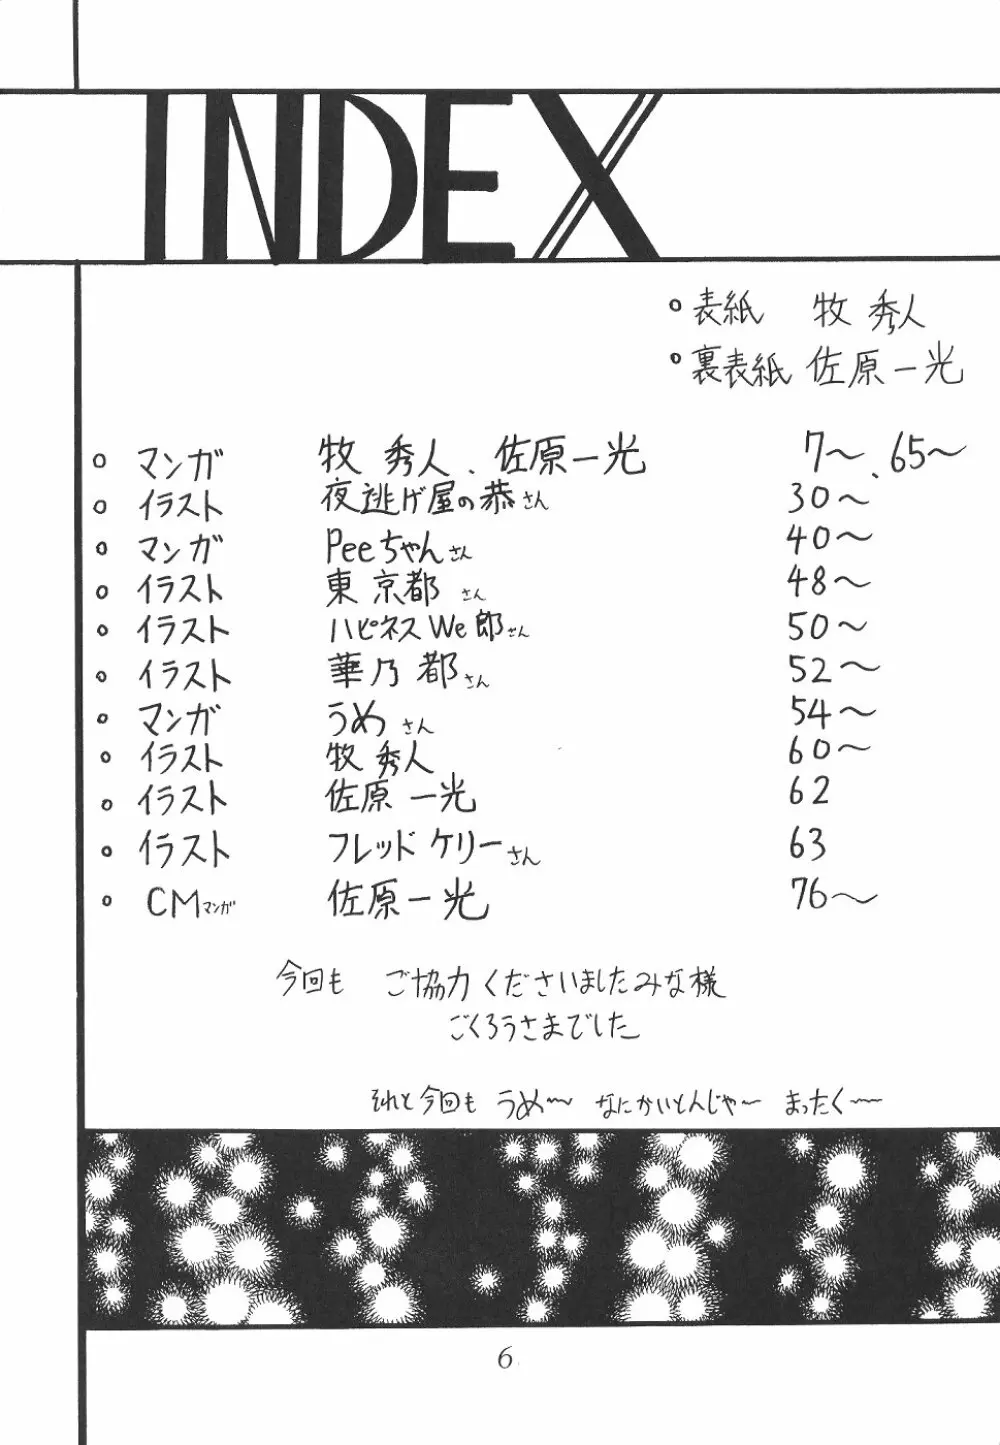 INDEX
○表紙 牧 秀人
○裏表紙 佐原一光
○ マンガ 牧 秀人、佐原一光 7〜、65〜
○ イラスト 夜逃げ屋の恭さん 30〜
○ マンガ Peeちゃんさん 40〜
○ イラスト 東京都さん 48〜
○ イラスト ハピネスWe郎さん 50〜
○ イラスト 華乃都さん 52〜
○ マンガ うめさん 54〜
○ イラスト 牧 秀人 60〜
○ イラスト 佐原一光 62
○ イラスト フレッドケリーさん 63
○ CMマンガ 佐原一光 76〜
今回も ご協力くださいましたみな様
ごくろうさまでした
それと今回も うめ〜 なにかいとんじゃ〜 まったく〜
6